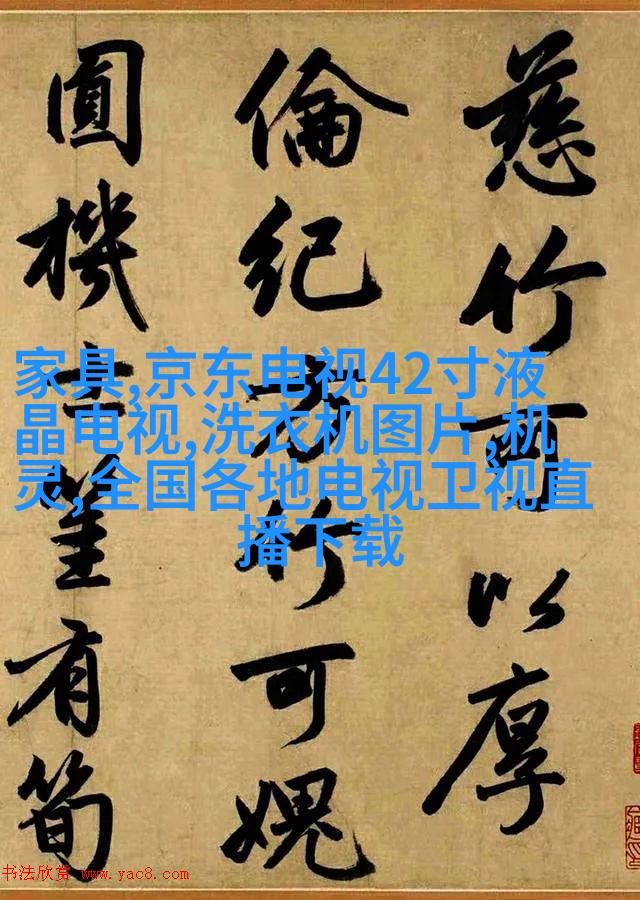 慈竹可以厚
倫紀方竹可愧
圓機士筀有筍
家具,京东电视42寸液
晶电视,洗衣机图片,机
灵,全国各地电视卫视直
播下载
书法欣赏 www.yac8.com